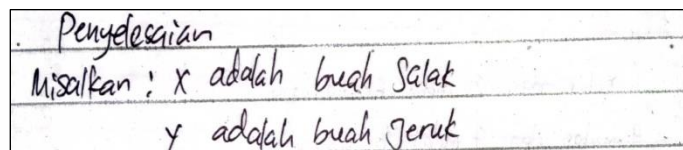 . Penyelesaian
Misalkan : X adalah buah Salak
y adalah buah Jeruk